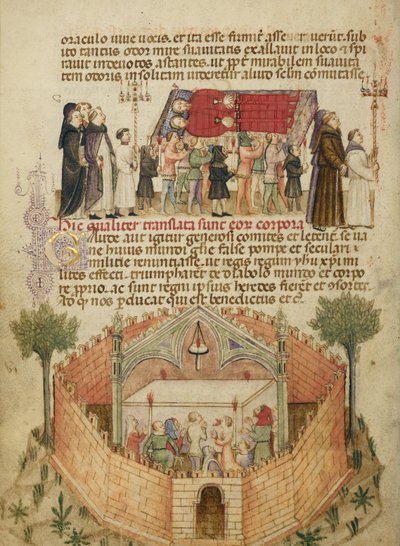 oraculo vive vocis. et ita esse firmit' asseverūt. sub
ito tantus odor mire suavitatis exallavit in loco ⁊ spi
ravit in devotos astantes. ut ꝓpt' mirabilem suavita
tem odoris insolitam
Hic qualiter translata sunt eoꝝ corpora
Gaudete igitur generosi comites et letent'. se va
ne huius mundi glīe false pompe et seculari
militie renuntiasse. ut regis regum yhu xp̄i mi
lites effecti. triumpharent de dyabolo mundo et corpo
re ꝓprio. ac sunt regni ipsius heredes fierent et ꝯsortes.
Ad qd nos ꝑducat qui est benedictus et c̄.